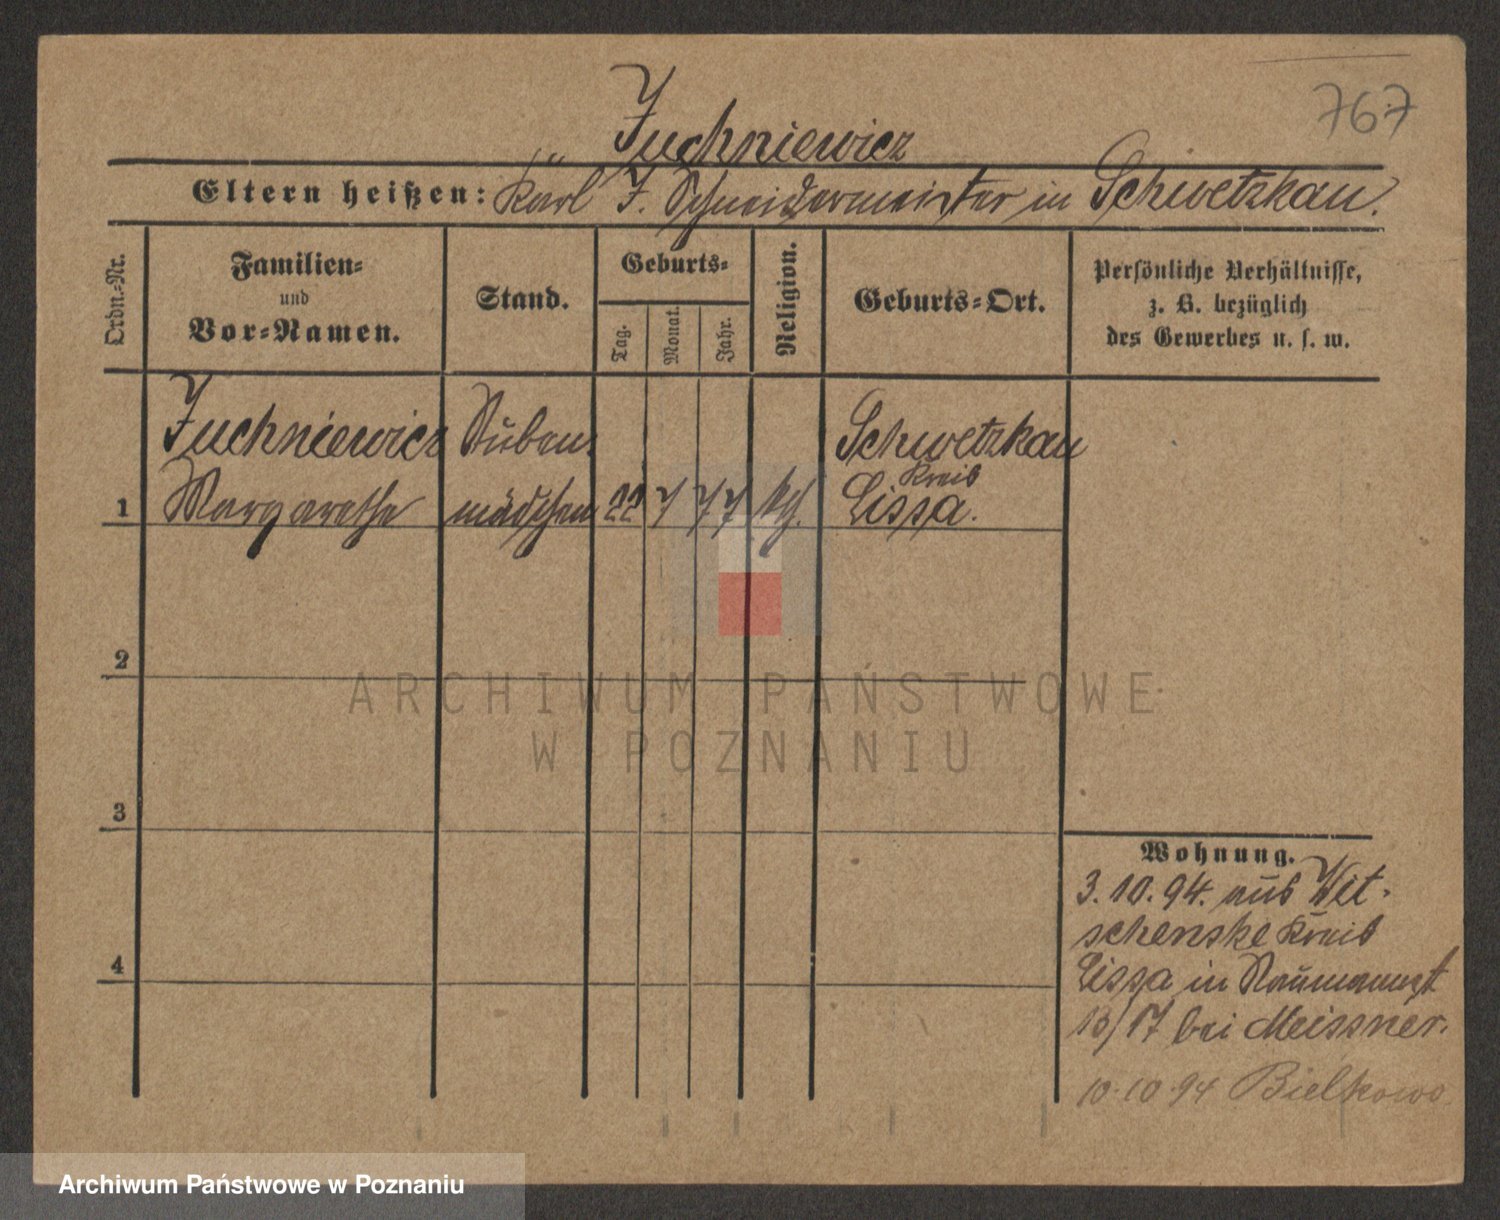 767
Juchniewicz
Eltern heißen: Karl J. Schneidermeister in Schwetzkau.
Ordn.-Nr.
Familien-
und
Vor-Namen.
Stand.
Geburts-
Tag.
Monat.
Jahr.
Religion.
Geburts-Ort.
Persönliche Verhältnisse,
z. B. bezüglich
des Gewerbes u. s. w.
Juchniewicz Stuben- Schwetzkau
Kreis
1 Margarethe mädchen 22 7 77 kth. Lissa.
2
ARCHIWUM PAŃSTWOWE
W POZNANIU
3
4
Wohnung.
3.10.94. aus Wit-
schenske Kreis
Lissa in Naumannst
13/17 bei Meissner.
10.10.94 Bielkowo
Archiwum Państwowe w Poznaniu